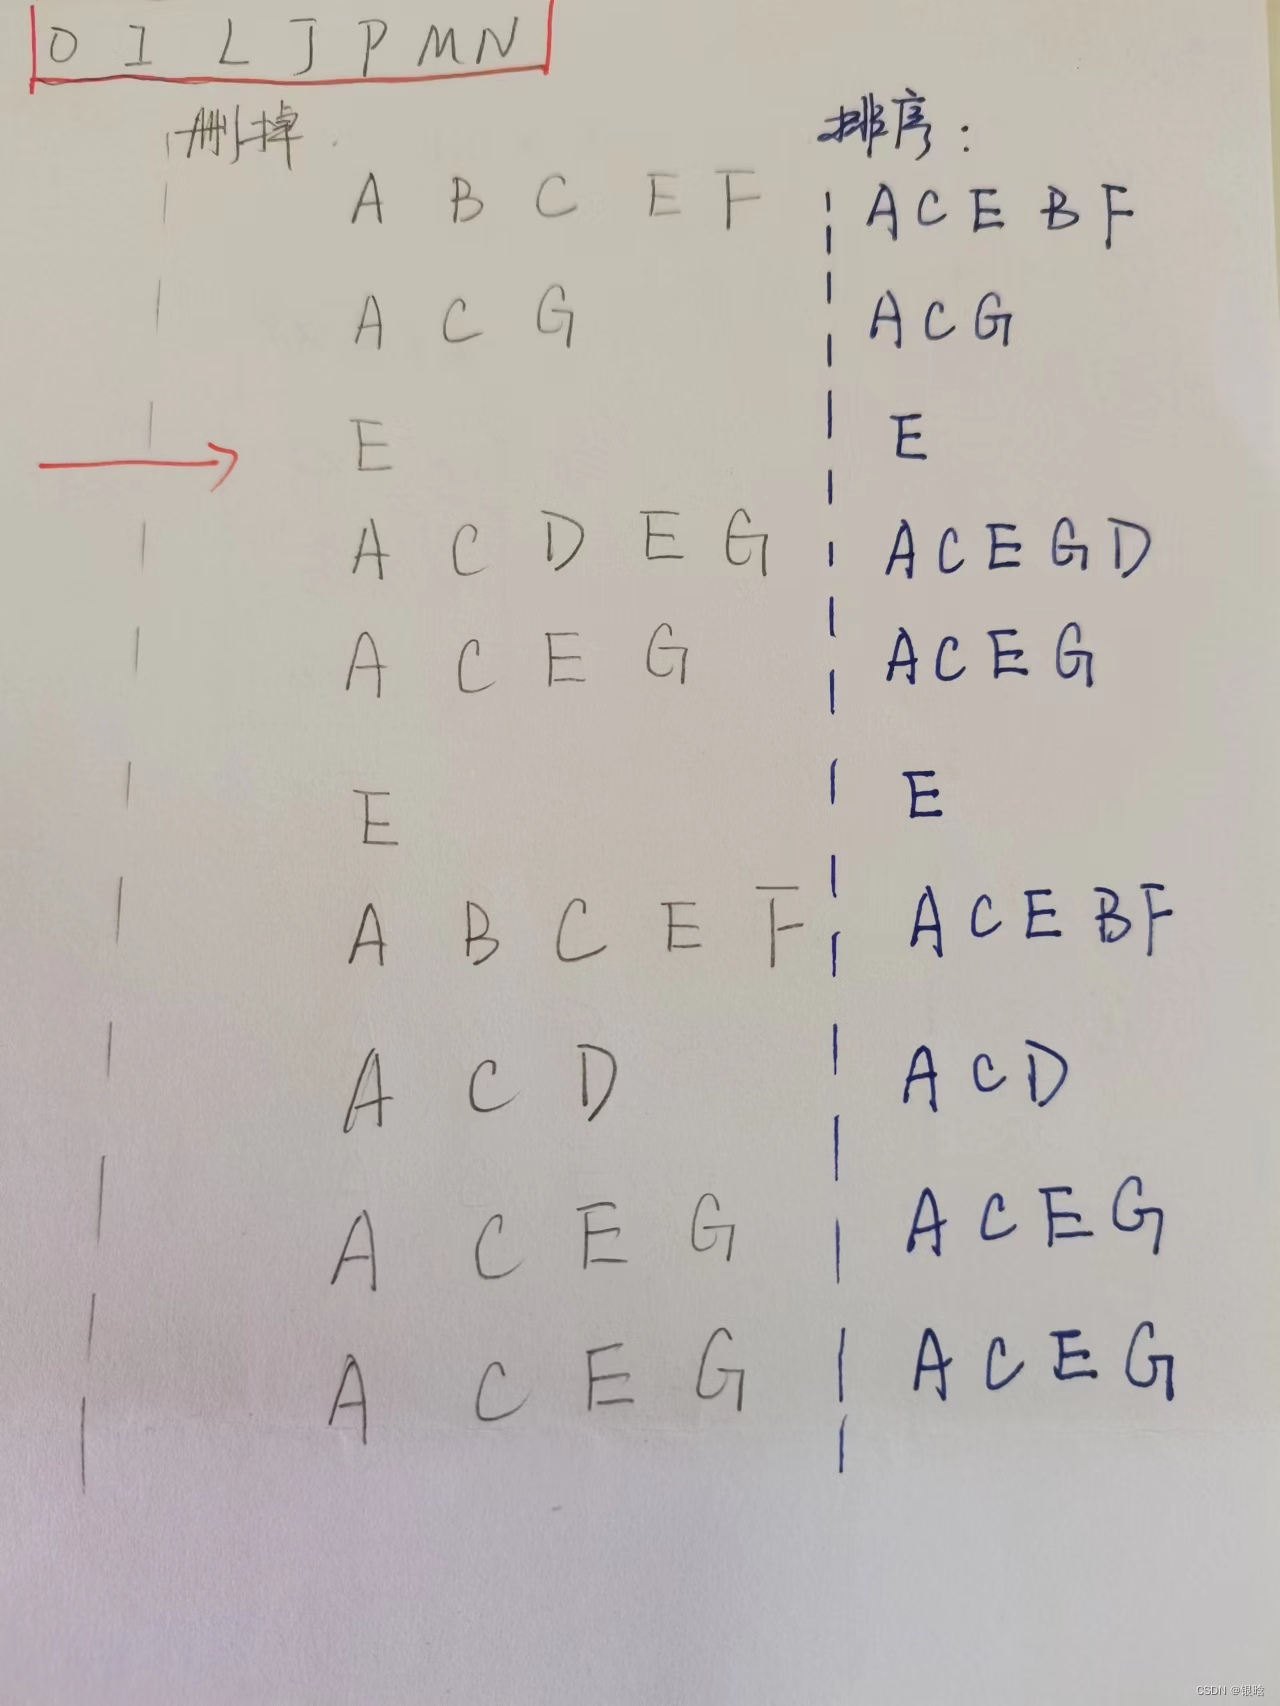 O I L J P M N
删掉 排序:
A B C E F A C E B F
A C G A C G
E E
A C D E G A C E G D
A C E G A C E G
E E
A B C E F A C E B F
A C D A C D
A C E G A C E G
A C E G A C E G
CSDN @银晗